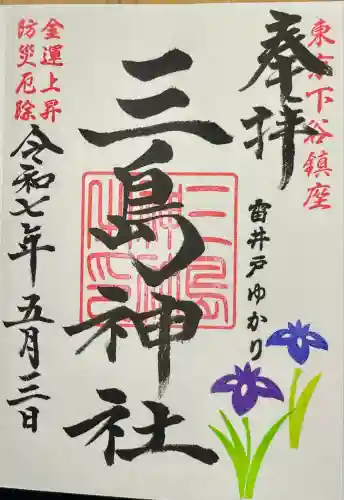 東京下谷鎮座
奉拝
雷井戸ゆかり
三島神社
金運上昇
防災厄除
令和七年五月三日